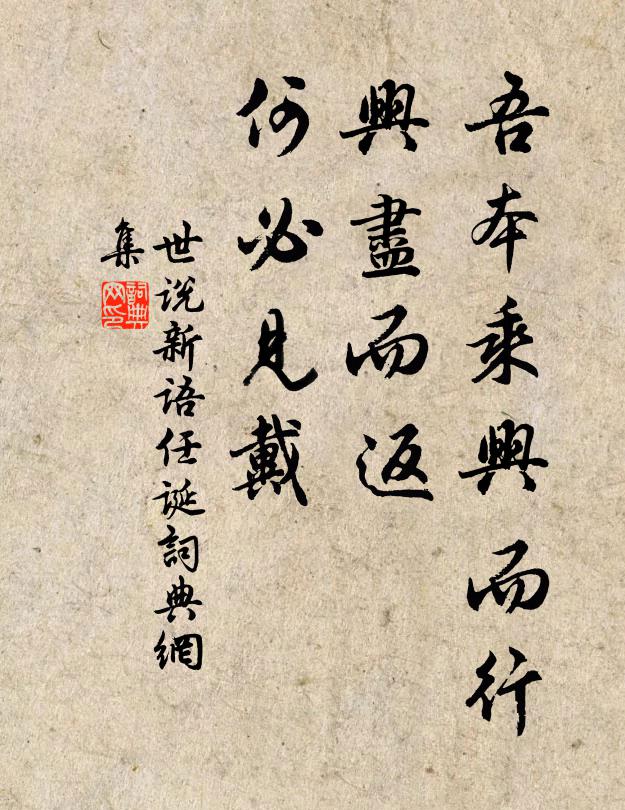 吾本乘興而行
興盡而返
何必見戴
世説新語任誕詞典網
集
詞典
网印